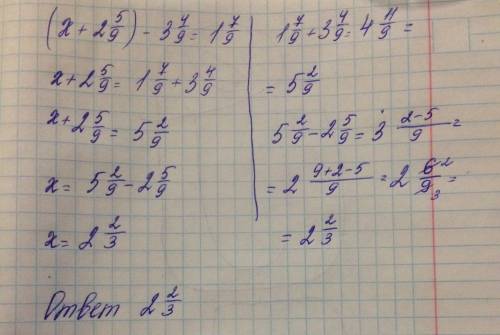 (x + 2 5/9) - 3 4/9 = 1 7/9
x + 2 5/9 = 1 7/9 + 3 4/9
x + 2 5/9 = 5 2/9
x = 5 2/9 - 2 5/9
x = 2 2/3
Ответ 2 2/3
1 7/9 + 3 4/9 = 4 11/9 =
= 5 2/9
5 2/9 - 2 5/9 = 3 (2-5)/9 =
= 2 (9+2-5)/9 = 2 6/9 2 3 =
= 2 2/3